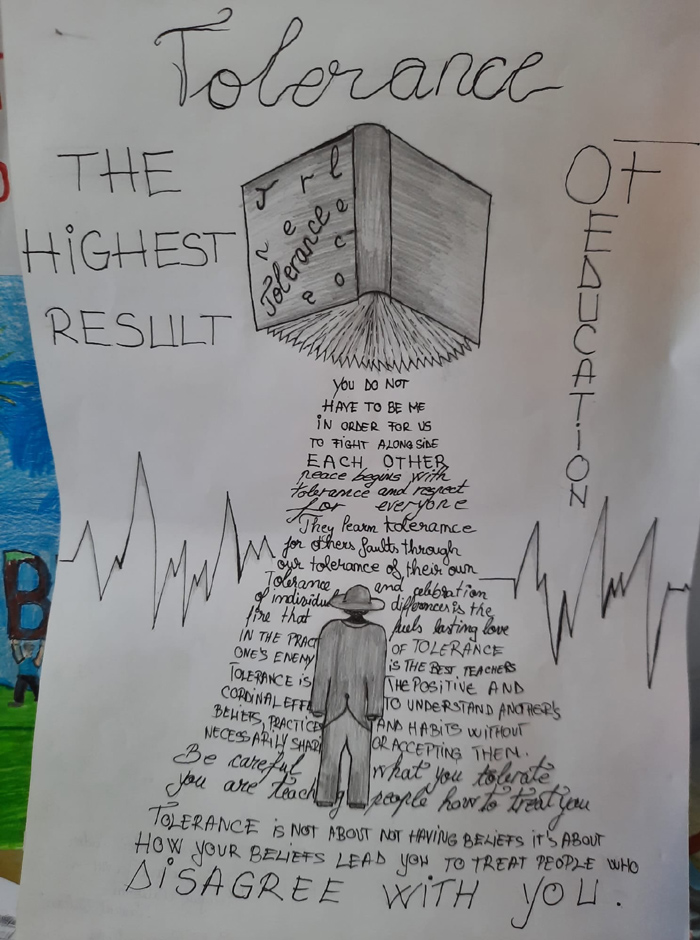 Tolerance
THE
HiGHEST
RESULT
OF
EDUCATiON
Tolerance
YOU DO NOT
HAVE TO BE ME
iN ORDER FOR US
TO FIGHT ALONGSIDE
EACH OTHER
peace begins with
tolerance and respect
for everyone
They learn tolerance
for others faults through
our tolerance of their own
Tolerance and celebration
of individu differences is the
fire that fuels lasting love
IN THE PRACT OF TOLERANCE
ONE'S ENEMY IS THE BEST TEACHERS
TOLERANCE iS THE POSITIVE AND
CORDINAL EFF TO UNDERSTAND ANOTHER'S
BELIEFS, PRACTICE AND HABITS WITHOUT
NECESSARILY SHARI OR ACCEPTING THEM.
Be careful what you tolerate
you are teach g people how to treat you
TOLERANCE iS NOT ABOUT NOT HAVING BELIEFS iT'S ABOUT
HOW YOUR BELIEFS LEAD YOU TO TREAT PEOPLE WHO
DiSAGREE WiTH YOU.
B